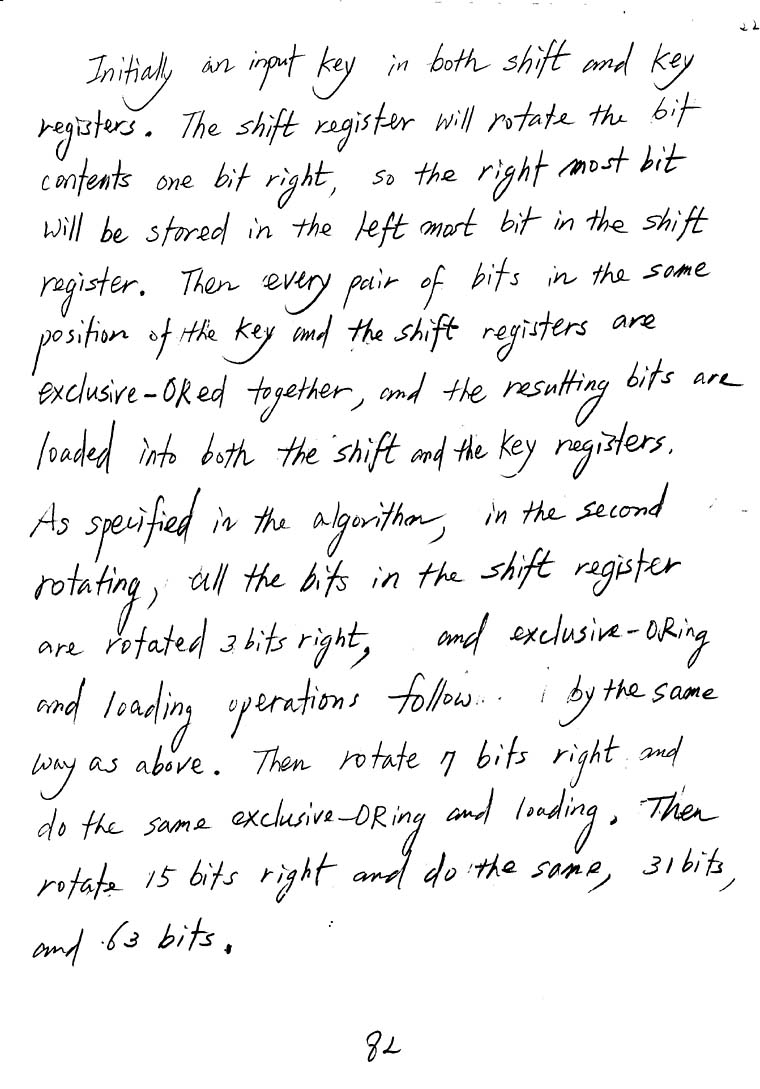 22
Initially an input key in both shift and key
registers. The shift register will rotate the bit
contents one bit right, so the right most bit
will be stored in the left most bit in the shift
register. Then every pair of bits in the same
position of the key and the shift registers are
exclusive-ORed together, and the resulting bits are
loaded into both the shift and the key registers.
As specified in the algorithm, in the second
rotating, all the bits in the shift register
are rotated 3 bits right, and exclusive-ORing
and loading operations follow by the same
way as above. Then rotate 7 bits right and
do the same exclusive-ORing and loading. Then
rotate 15 bits right and do the same, 31 bits,
and 63 bits.
82